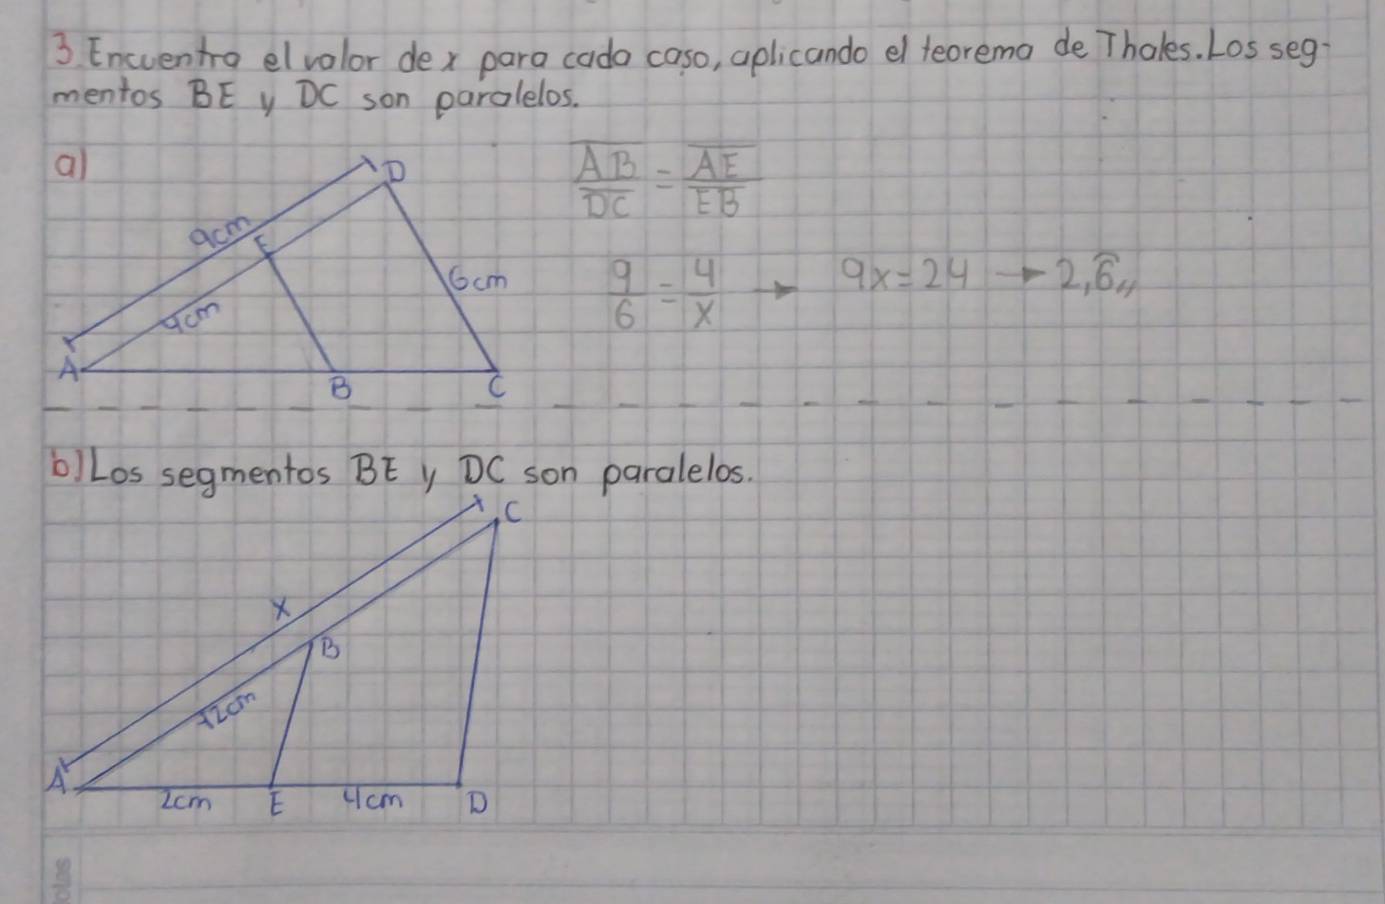 3. Encuentra el valor de x para cada caso, aplicando el teorema de Thales. Los seg-
mentos BE y DC son paralelos.
a)
AB/DC = AE/EB
9/6 = 4/x → 9x = 24 → 2,6̂,,
D
9cm
E
6cm
4cm
A
B
C
b) Los segmentos BE y DC son paralelos.
C
x
B
12cm
A
2cm
E
4cm
D